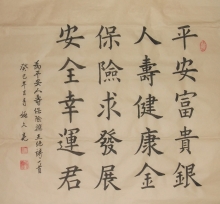 平安富貴銀
人壽健康金
保險求發展
安全幸運君
為平安人壽保險
癸巳年